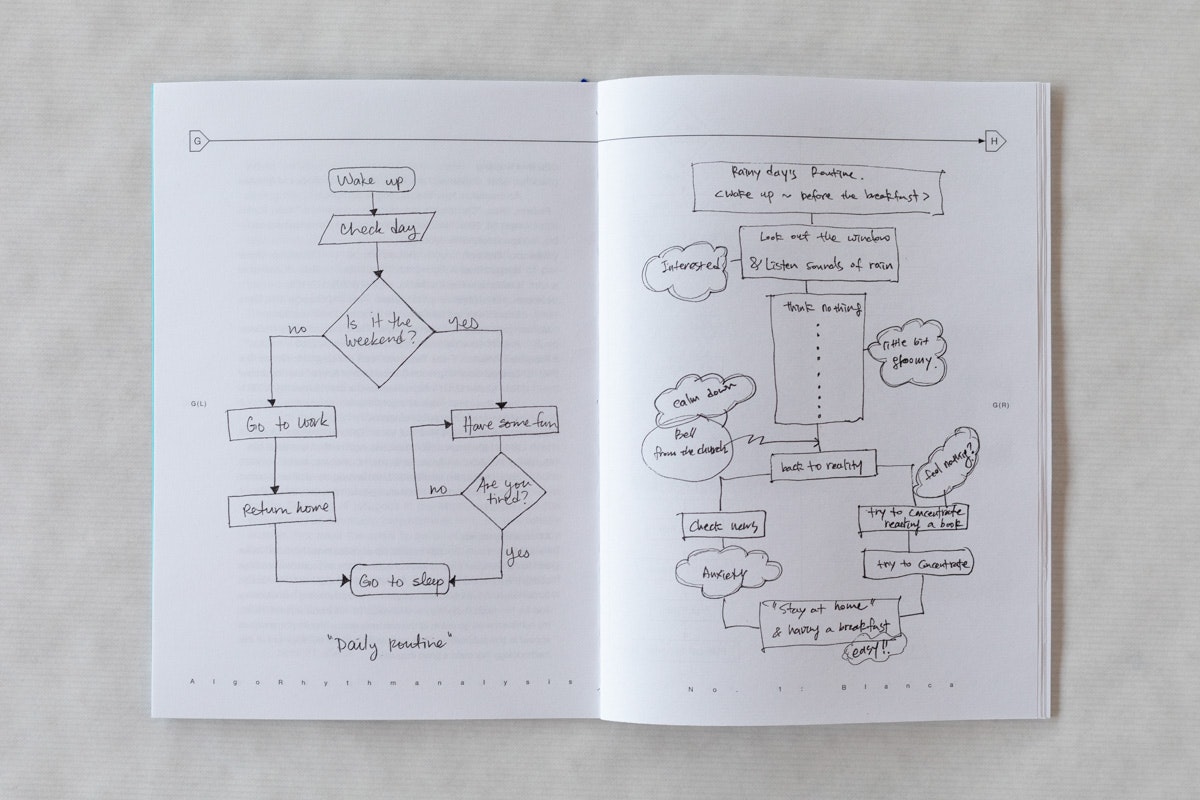 G
Wake up
Check day
Is it the
weekend?
no
yes
Go to work
Have some fun
Return home
Are you
tired?
no
yes
Go to sleep
"Daily Routine"
G(L)
AlgoRhythmanalysis
H
Rainy day's Routine.
<Wake up ~ before the breakfast>
Look out the window
& Listen sounds of rain
Interested
think nothing
little bit
gloomy.
calm down
Bell
from the church
back to reality
feel nothing?
Check news
try to concentrate
reading a book
Anxiety
try to concentrate
"Stay at home"
& having a breakfast
easy!!
G(R)
No. 1: Blanca